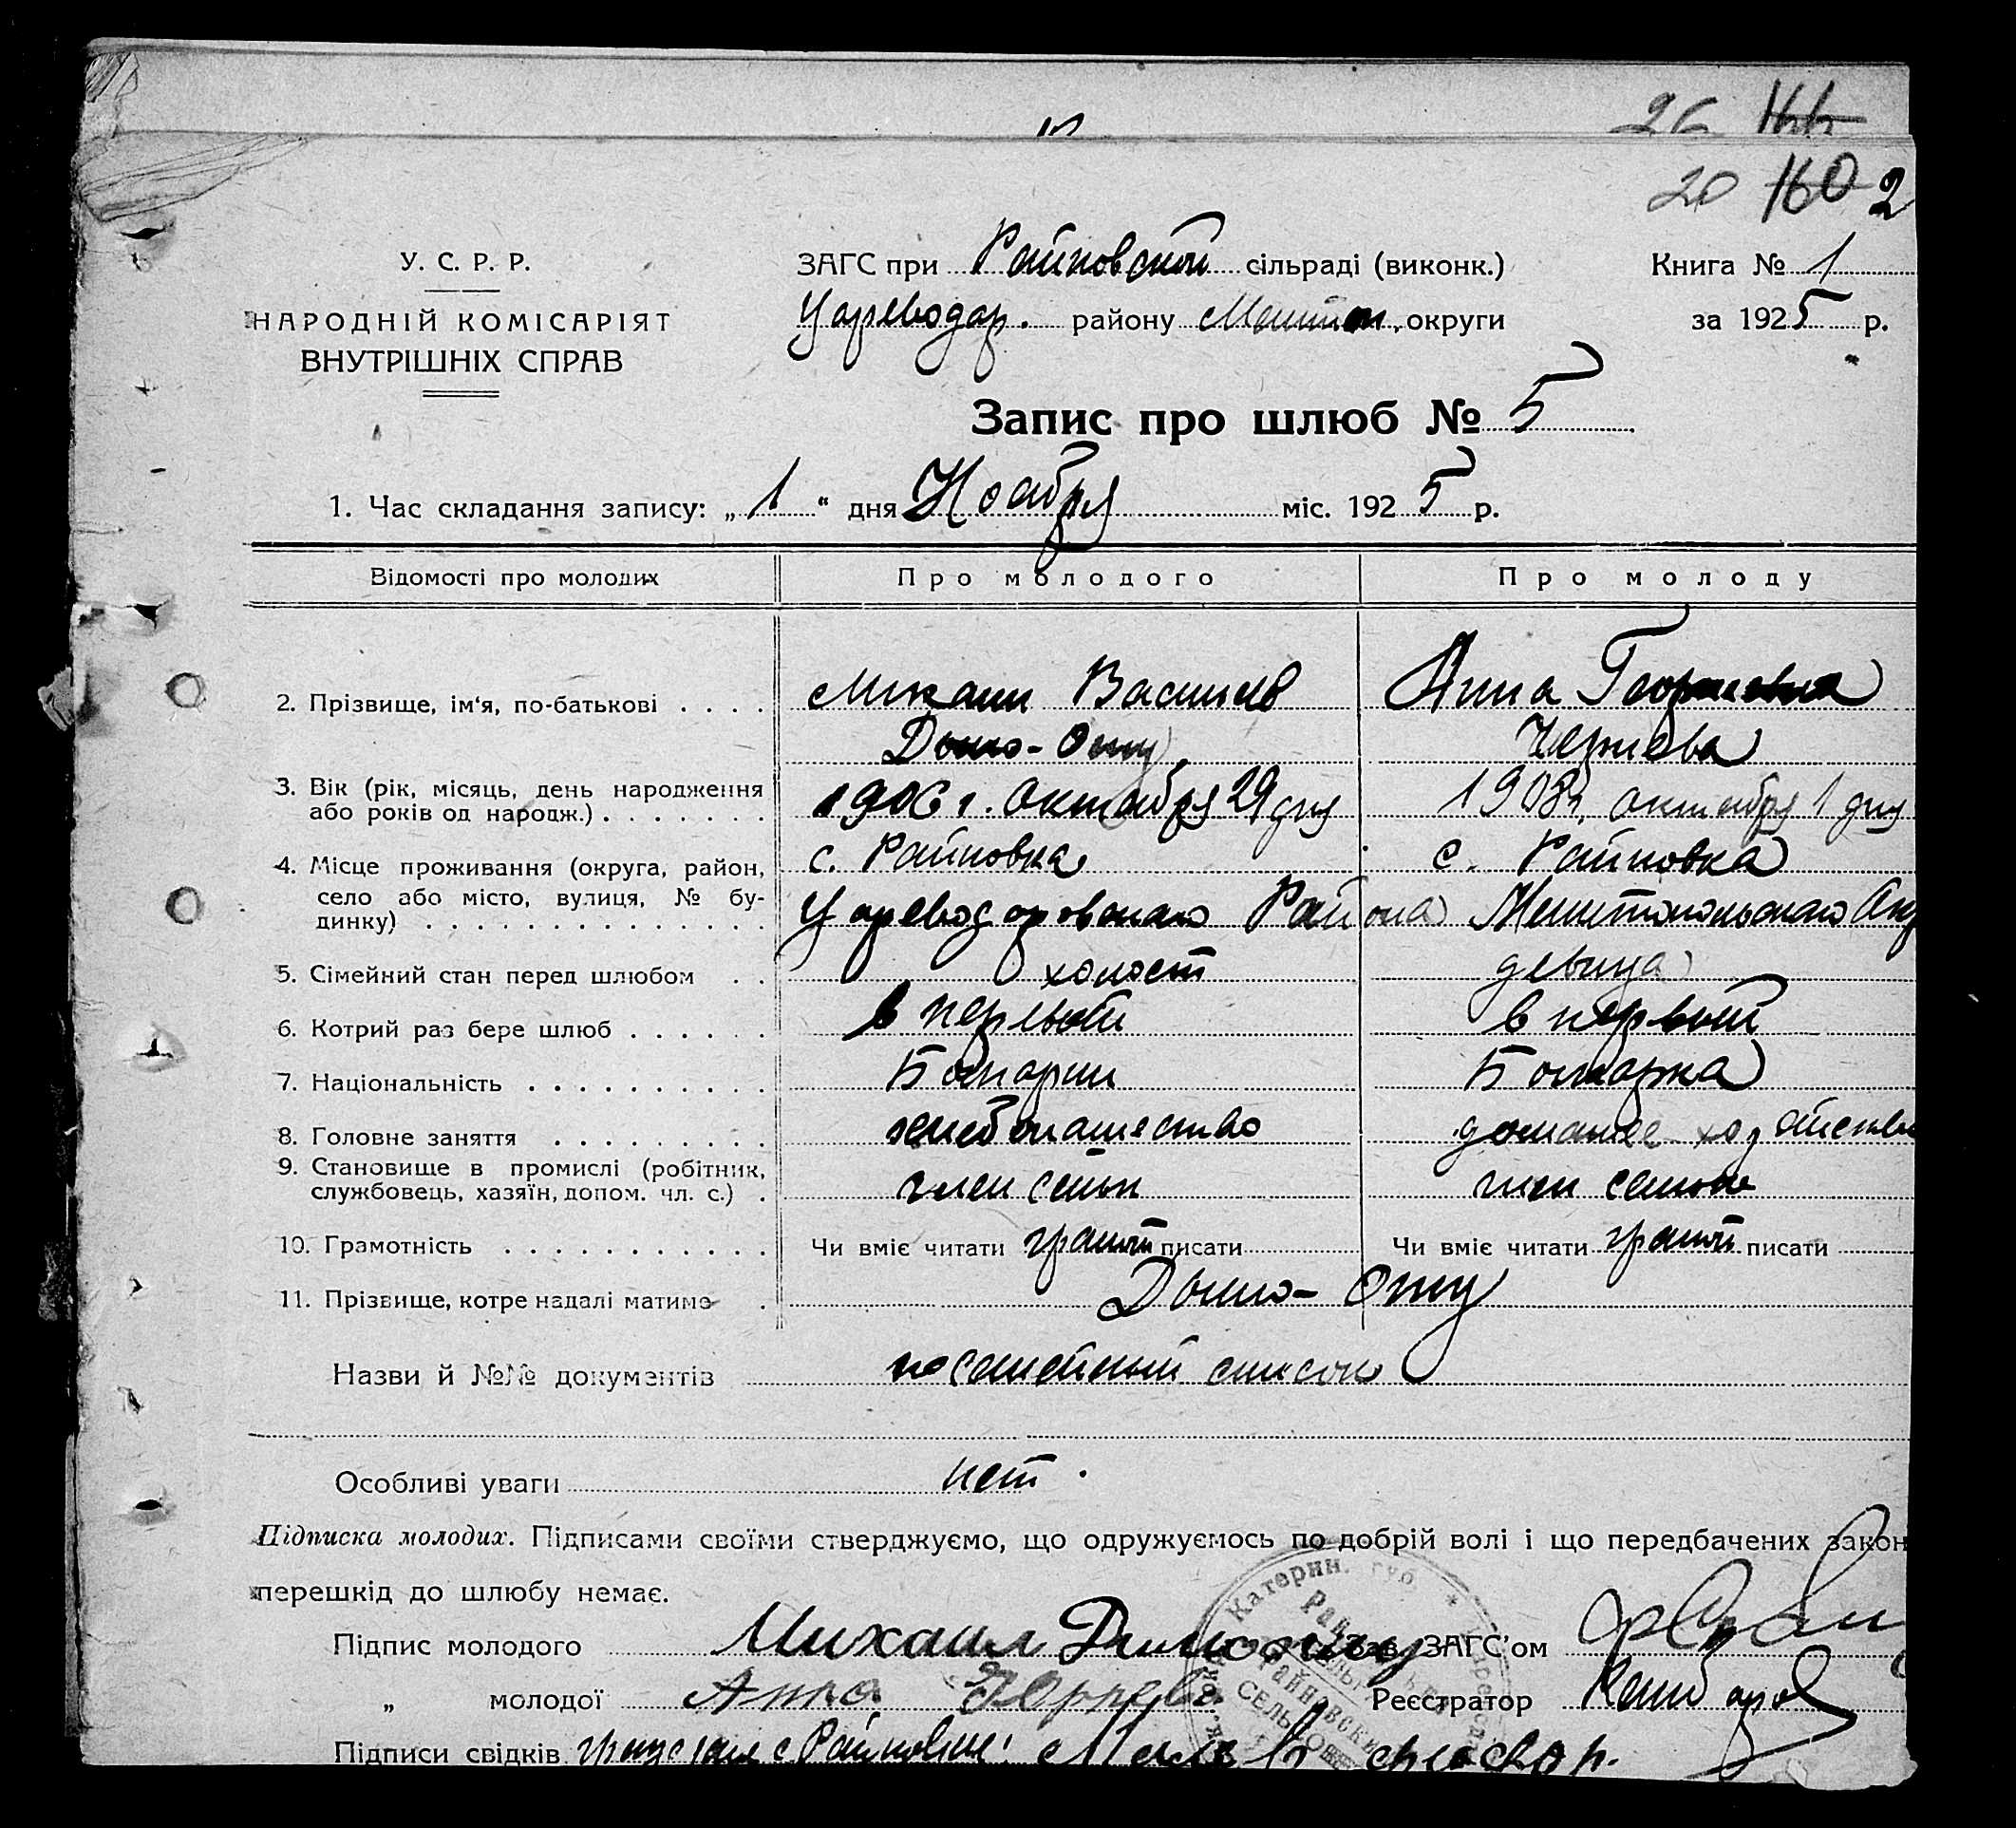 26 166
20 160 2
У. С. Р. Р.
НАРОДНІЙ КОМІСАРІЯТ
ВНУТРІШНІХ СПРАВ
ЗАГС при Райновской сільраді (виконк.)
Цареводар. району Мелитоп. округи
Книга № 1
за 1925 р.
Запис про шлюб № 5
1. Час складання запису: „1" дня Ноября міс. 1925 р.
Відомості про молодих Про молодого Про молоду
2. Прізвище, ім'я, по-батькові . . . . Михаил Васильев Анна Георгиевна
Дымо-Оглу Чернева
3. Вік (рік, місяць, день народження
або років од народж.) . . . . . . . 1906 г. Октября 29 дня 1908 г. Октября 1 дня
4. Місце проживання (округа, район, с. Райновка с. Райновка
село або місто, вулиця, № бу-
динку) . . . . . . . . . . . . . . . Цареводаровского Района Мелитопольского Окр
5. Сімейний стан перед шлюбом . . холост девица
6. Котрий раз бере шлюб . . . . . . в первый в первый
7. Національність . . . . . . . . . . Болгарин Болгарка
8. Головне заняття . . . . . . . . . хлебопашество домашнее хозяйство
9. Становище в промислі (робітник,
службовець, хазяїн, допом. чл. с.) . член семьи член семьи
10. Грамотність . . . . . . . . . . . . Чи вміє читати грамот писати Чи вміє читати грамот писати
11. Прізвище, котре надалі матиме . Дымо-Оглу
Назви й №№ документів посемейный список
Особливі уваги нет.
Підписка молодих. Підписами своїми стверджуємо, що одружуємось по добрій волі і що передбачених закон
перешкід до шлюбу немає.
Підпис молодого Михаил Димоглу Зав. ЗАГС'ом
„ молодої Анна Чернева Реєстратор
Підписи свідків граждане с Райновки:
Катерин. губ.